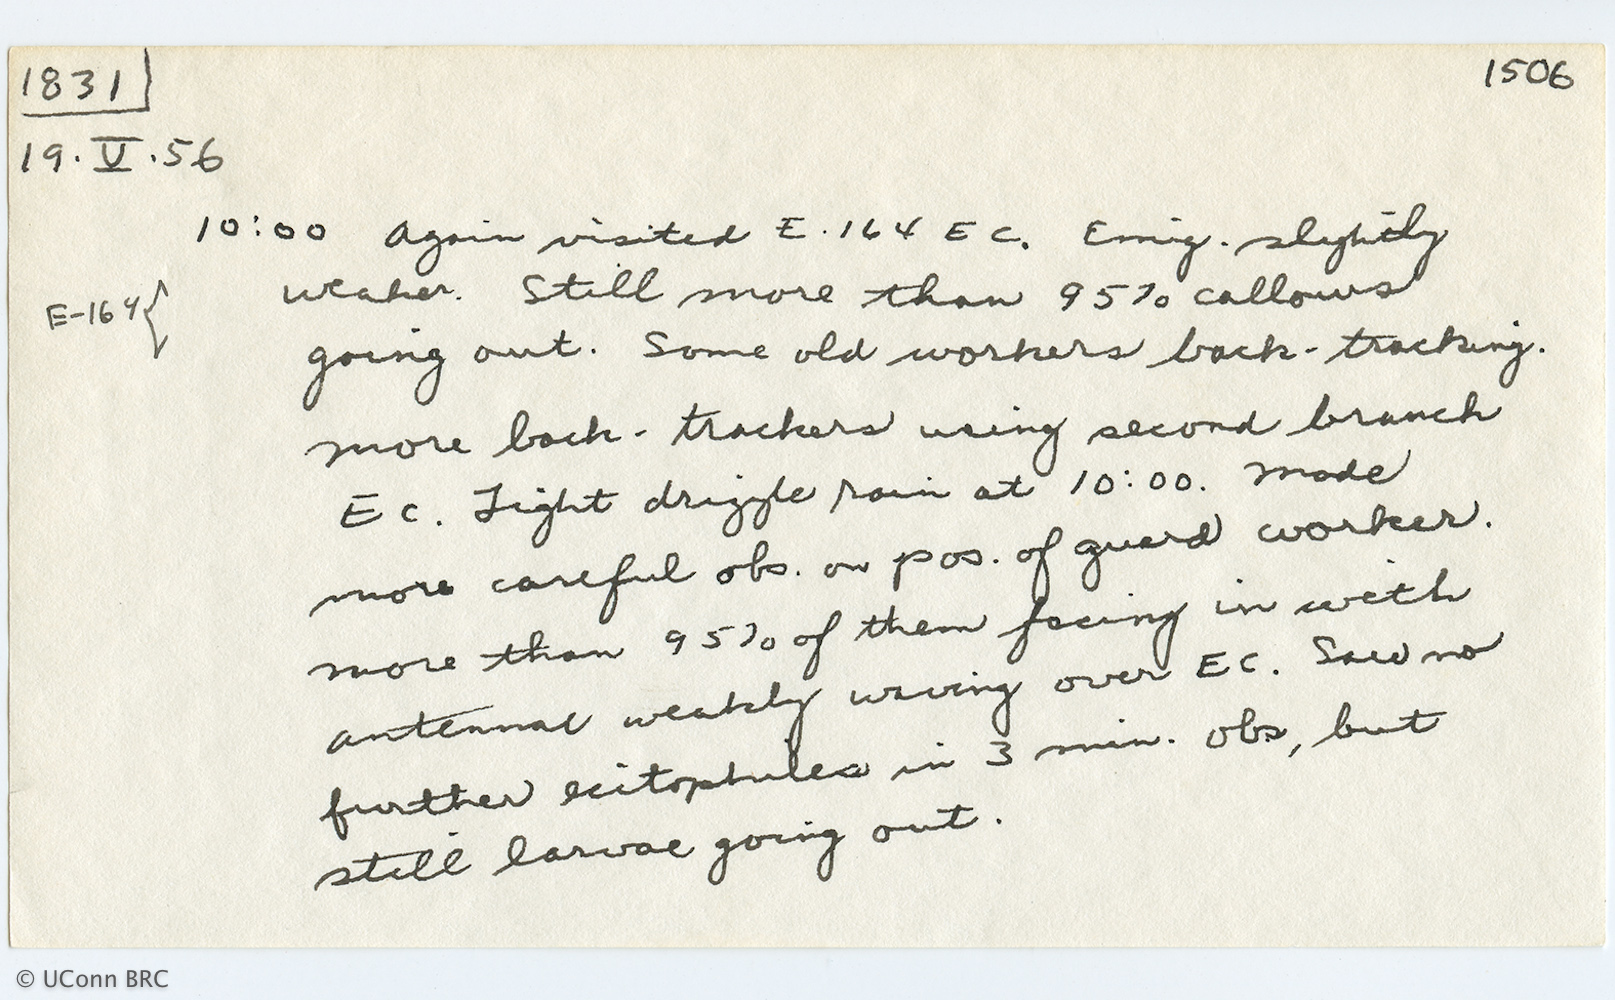 1831
1506
19.V.56
10:00 Again visited E.164 EC. Emig. slightly
E-164{
weaker. Still more than 95% callows
going out. Some old workers back-tracking.
more back-trackers using second branch
EC. Light drizzle rain at 10:00. Made
more careful obs. on pos. of guard worker.
more than 95% of them facing in with
antennae weakly waving over EC. Saw no
further ecitophiles in 3 min. obs, but
still larvae going out.
© UConn BRC